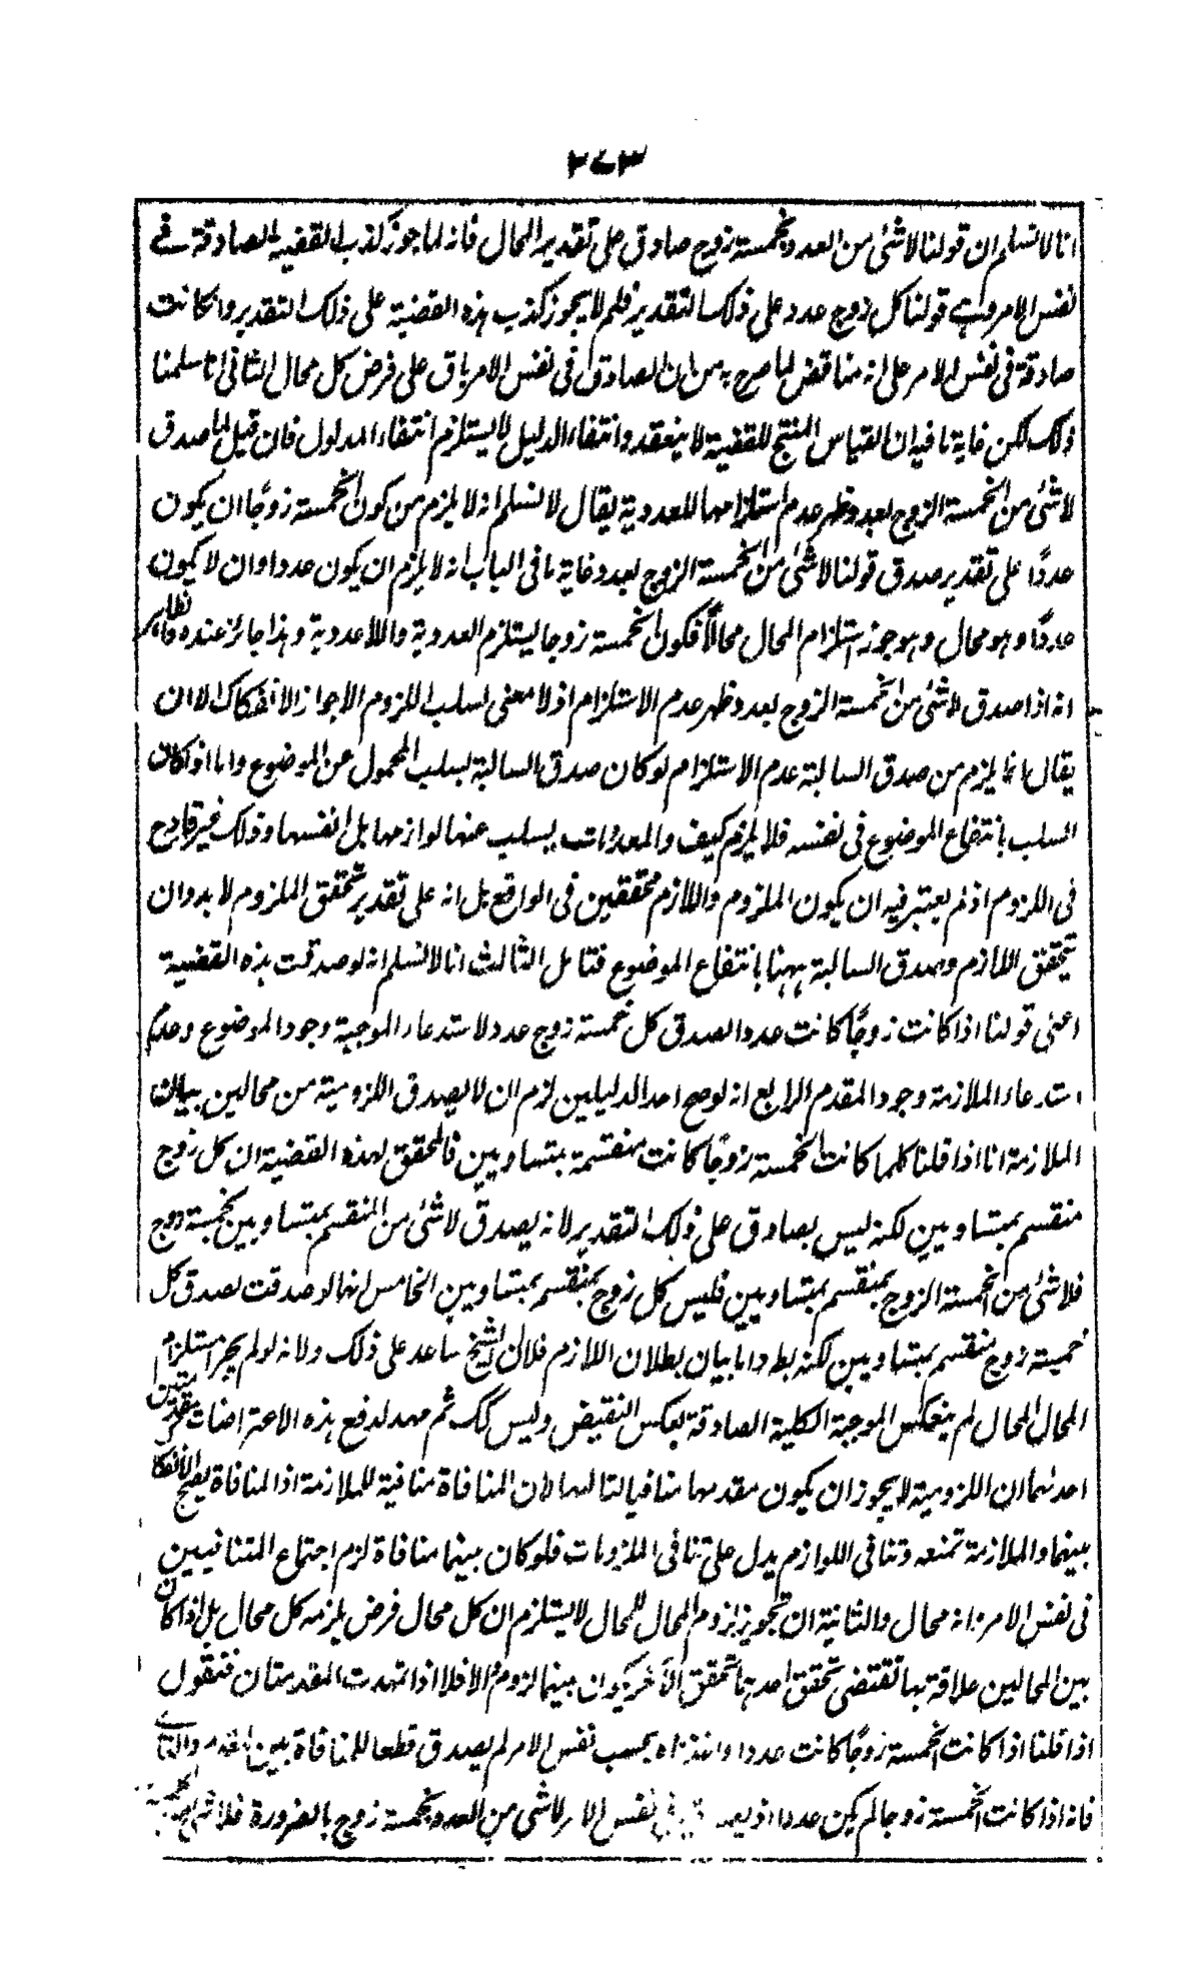 ٢٧٣
انا لا نسلم ان قولنا لا شئ من العدد بخمسة زوج صادق على تقدير المحال فانه لما جوز كذب القضية الصادقة فے
نفس الامر وہے قولنا كل زوج عدد على ذلك التقدير فلم لا يجوز كذب ہذه القضية على ذلك التقدير وان كانت
صادقة فى نفس الامر على انه مناقض لما صرح به من ان الصادق فى نفس الامر باق على فرض كل محال الثانى انا سلمنا
ذلك لكن غاية ما فيه ان القياس المنتج للقضية لا ينعقد وانتفاء الدليل لا يستلزم انتفاء المدلول فان قيل لما صدق
لا شئ من الخمسة الزوج بعدد ظهر عدم استلزامها للعددية يقال لا نسلم انه لا يلزم من كون الخمسة زوجًا ان يكون
عددًا على تقدير صدق قولنا لا شئ من الخمسة الزوج بعدد غاية ما فى الباب انه لا يلزم ان يكون عددا وان لا يكون
عددًا وہو محال وہو جوز استلزام المحال محالاً فكون الخمسة زوجا يستلزم العددية واللاعددية وہذا جائز عنده
انه اذا صدق لا شئ من الخمسة الزوج بعدد ظهر عدم الاستلزام اذ لا معنى لسلب اللزوم الا جواز الانفكاك لانا ان
يقال انما يلزم من صدق السالبة عدم الاستلزام لو كان صدق السالبة بسلب المحمول عن الموضوع واما اذا كان
السلب بانتفاء الموضوع فى نفسه فلا يلزم كيف والمعدومات يسلب عنها لوازمها بل انفسها وذلك غير قادح
فى اللزوم اذ لم يعتبر فيه ان يكون الملزوم واللازم متحققين فى الواقع بل انه على تقدير تحقق الملزوم لا بد وان
يتحقق اللازم وصدق السالبة ہہنا بانتفاء الموضوع فتامل الثالث انا لا نسلم انه لو صدقت ہذه القضية
اعنى قولنا اذا كانت زوجًا كانت عددا لصدق كل خمسة زوج عدد لاستدعاء الموجبة وجود الموضوع وعدم
استدعاء الملازمة وجود المقدم الرابع انه لو صح احد الدليلين لزم ان لا يصدق اللزومية من محالين بيان
الملازمة انا اذا قلنا كلما كانت الخمسة زوجًا كانت منقسمة بمتساويين فالمحقق لهذه القضية ان كل زوج
منقسم بمتساويين لكنه ليس بصادق على ذلك التقدير لانه يصدق لا شئ من المنقسم بمتساويين بخمسة زوج
فلا شئ من الخمسة الزوج بمنقسم بمتساويين فليس كل زوج بمنقسم بمتساويين الخامس انها لو صدقت لصدق كل
خمسة زوج منقسم بمتساويين لكنه بط واما بيان بطلان اللازم فلان الشيخ ساعد على ذلك ولانه لو لم يجز استلزام
المحال المحال لم ينعكس الموجبة الكلية الصادقة بعكس النقيض وليس كك ثم مهد لدفع ہذه الاعتراضات مقدمتين
احدہما ان اللزومية لا يجوز ان يكون مقدمها منافيا لتاليها لان المنافاة منافية للملازمة اذ المنافاة يصح الانفكاك
بينهما والملازمة تمنعه وتنافى اللوازم يدل على تنافى الملزومات فلو كان بينهما منافاة لزم اجتماع المتنافيين
فى نفس الامر وانه محال والثانية ان تجويز لزوم المحال للمحال لا يستلزم ان كل محال فرض يلزمه كل محال بل اذا كان
بين المحالين علاقة بها تقتضى تحقق احدہما تحقق الآخر يكون بينهما لزوم والا فلا اذا تمهدت المقدمتان فنقول
اذا قلنا اذا كانت الخمسة زوجًا كانت عددا بحسب نفس الامر لم يصدق قطعا للمنافاة بين المقدم والتالى
فانه اذا كانت الخمسة زوجا لم يكن عددا اذ يصدق فى نفس الامر لا شئ من العدد بخمسة زوج بالضرورة